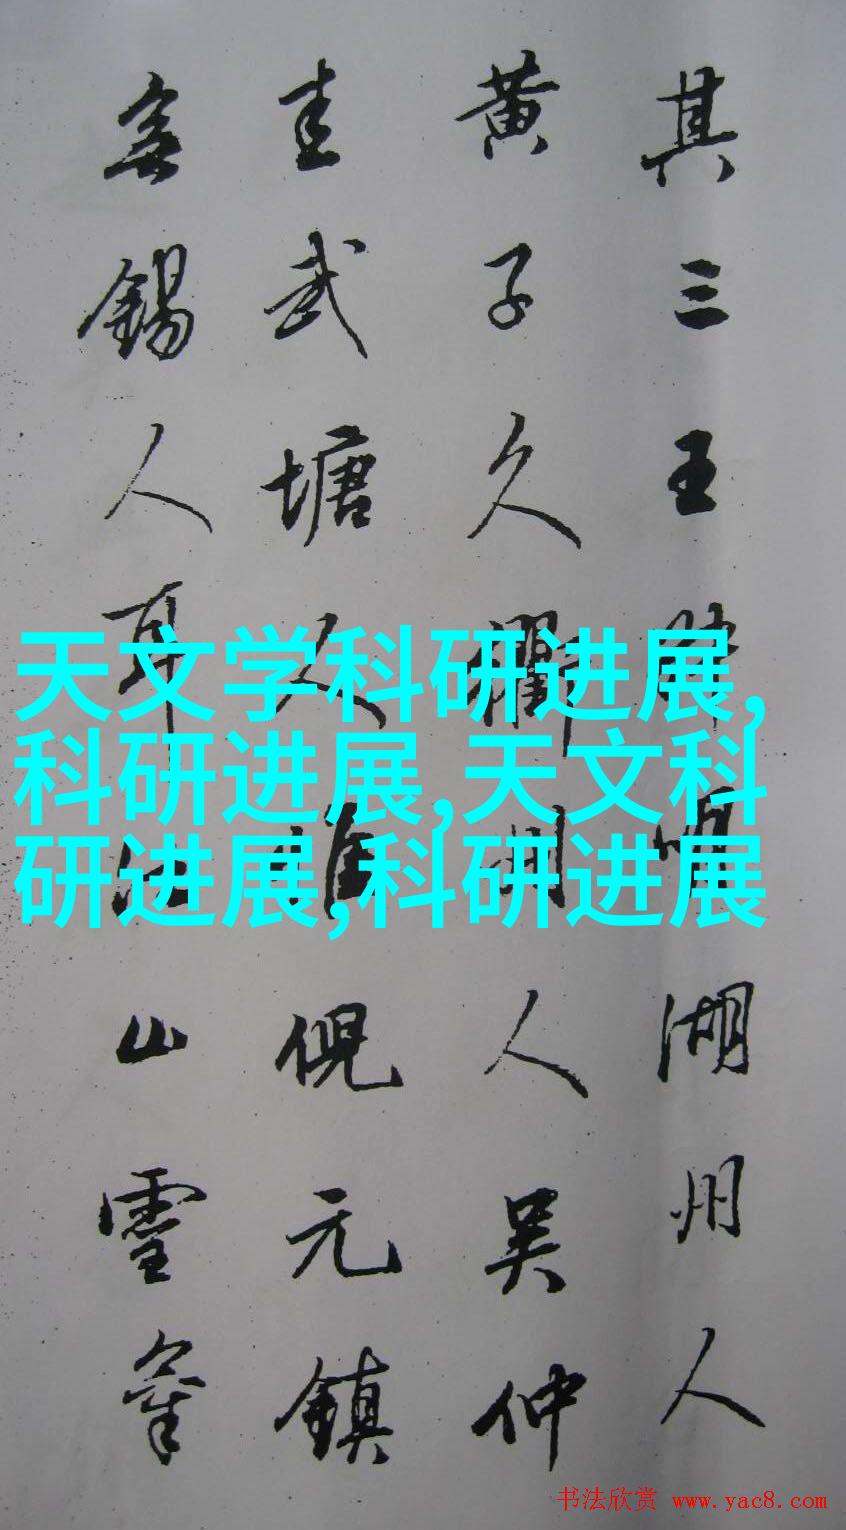 其三王叔明湖州人
黄子久衢州人吴仲
圭武塘人惟倪元鎮
無錫人耳江山霊
天文学科研进展,
科研进展,天文科
研进展,科研进展
书法欣赏 www.yac8.com